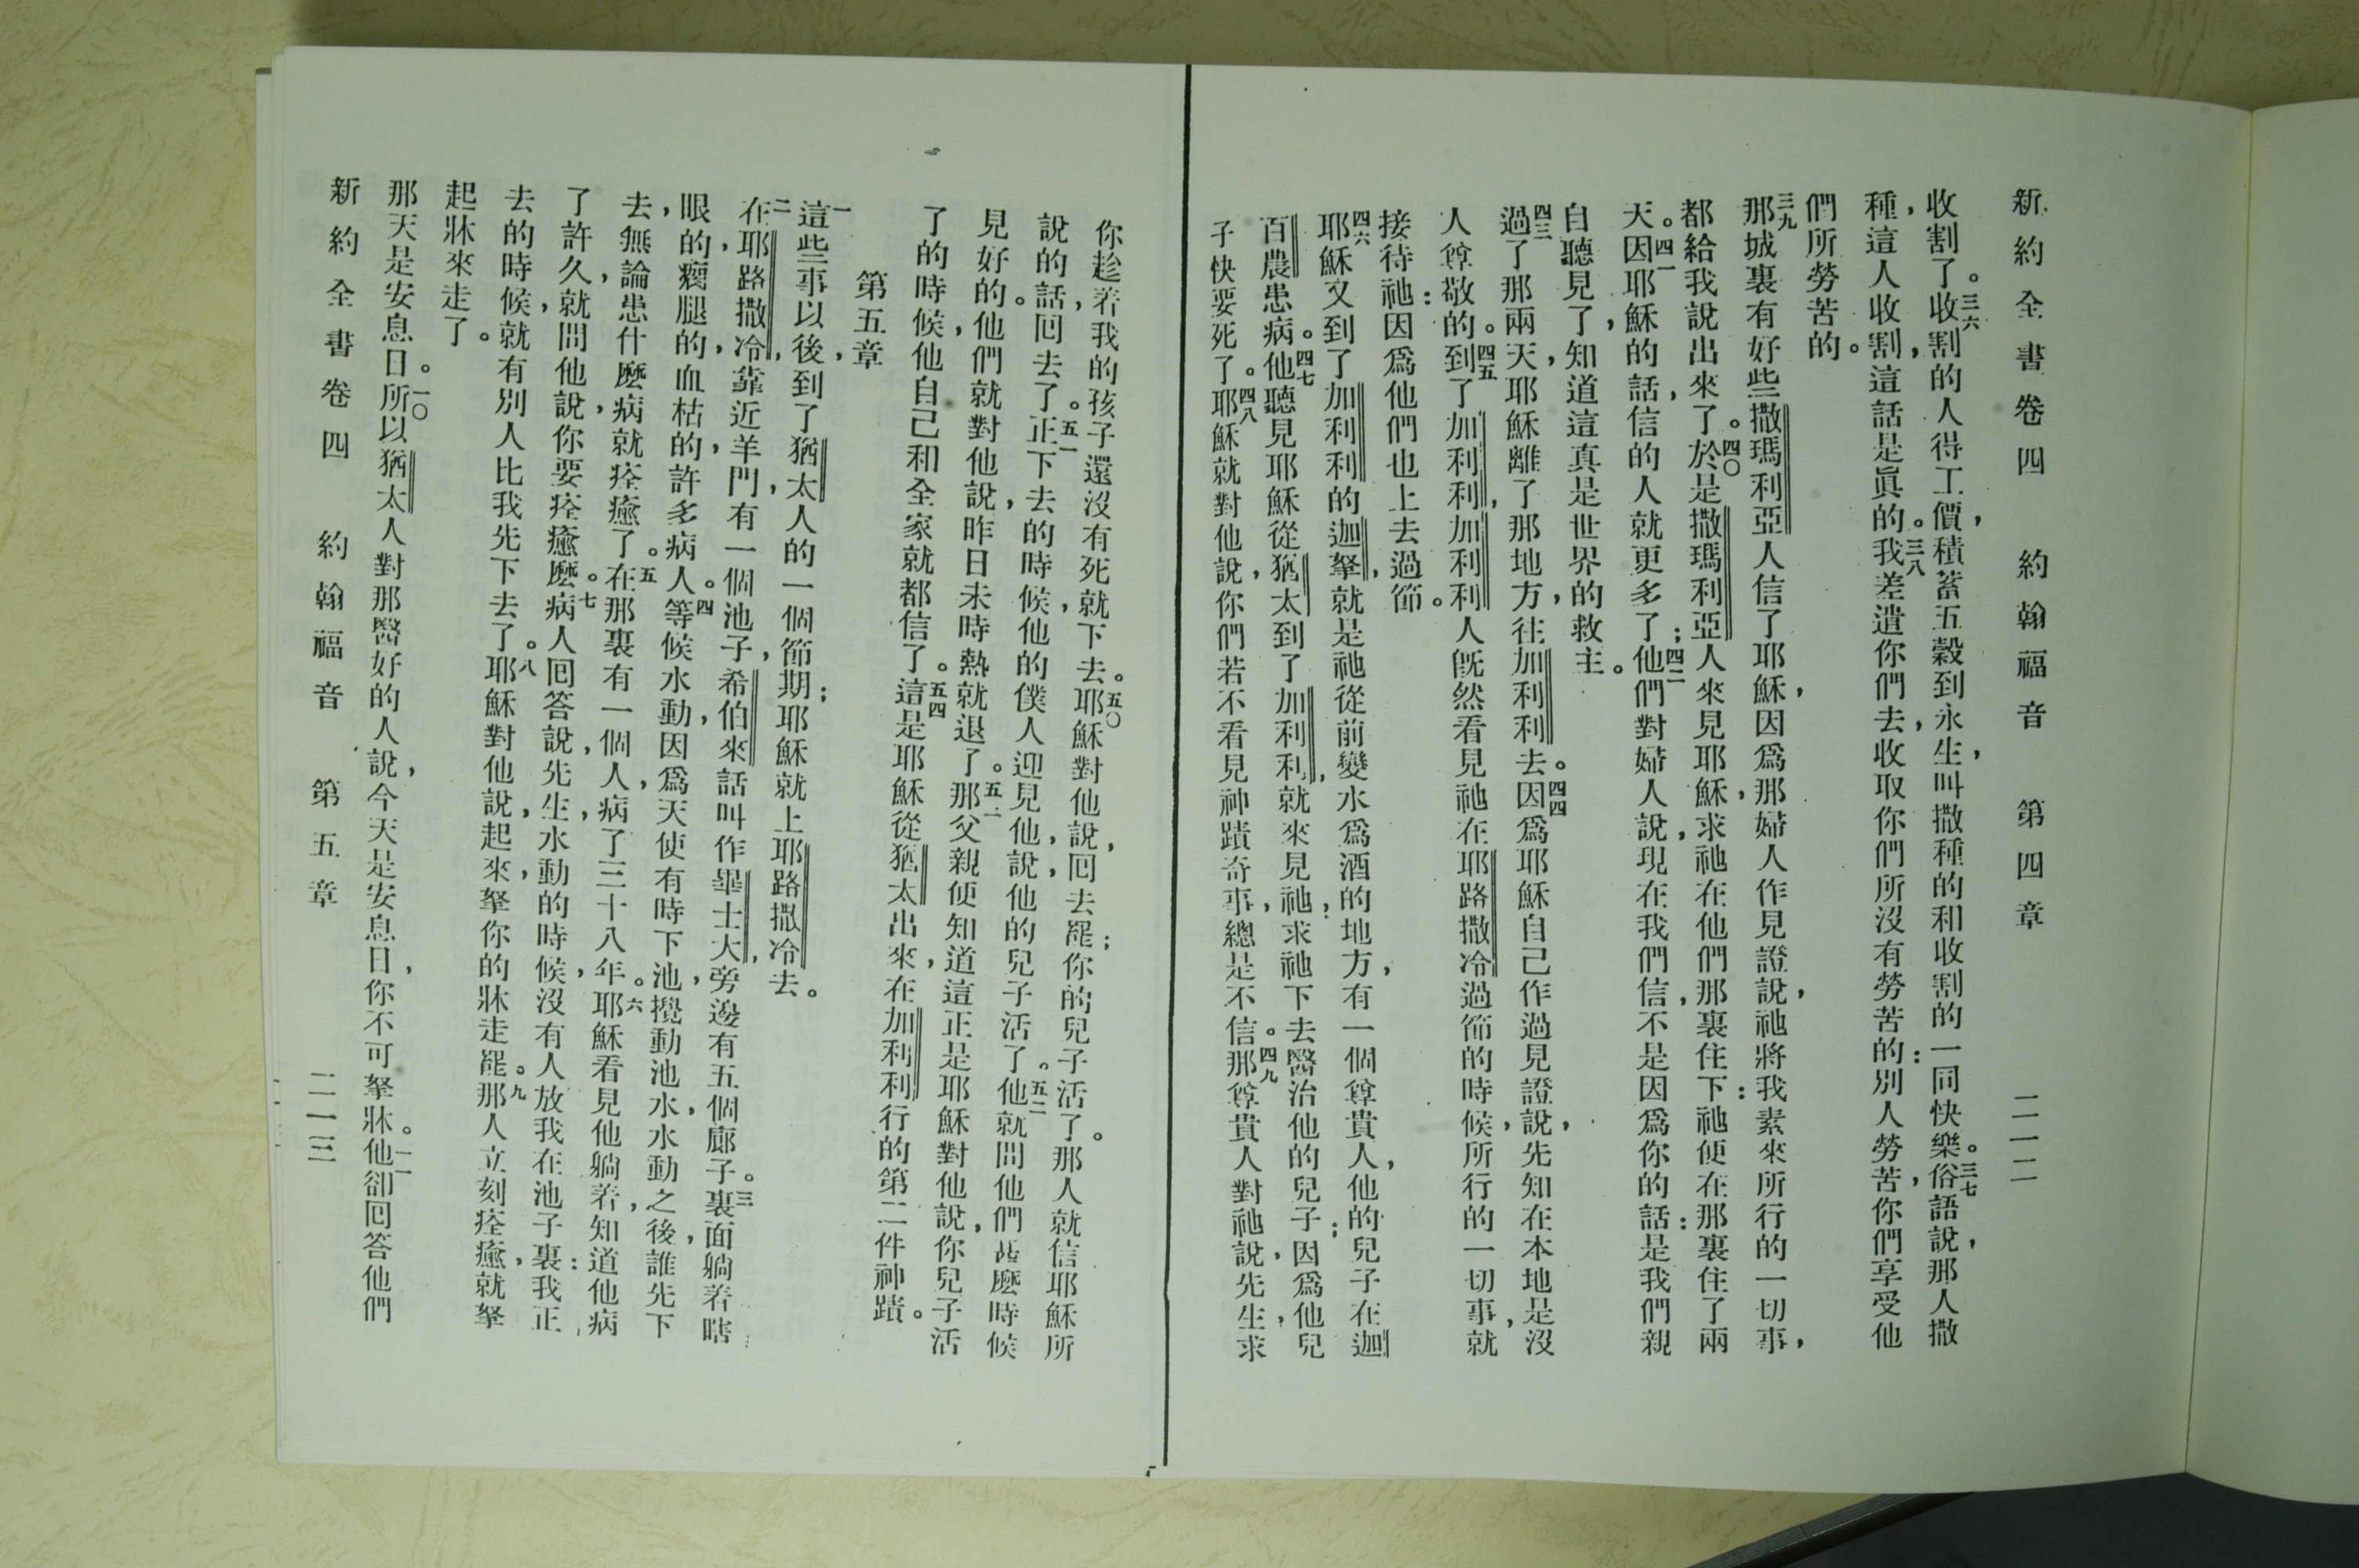 新約全書卷四　約翰福音　第四章　二一二
收割了。三六收割的人得工價，積蓄五穀到永生，叫撒種的和收割的一同快樂。三七俗語說，那人撒
種，這人收割，這話是眞的。三八我差遣你們去，收取你們所沒有勞苦的：別人勞苦，你們享受他
們所勞苦的。
三九那城裏有好些撒瑪利亞人信了耶穌，因爲那婦人作見證說，祂將我素來所行的一切事，
都給我說出來了。四〇於是撒瑪利亞人來見耶穌，求祂在他們那裏住下：祂便在那裏住了兩
天。四一因耶穌的話，信的人就更多了；四二他們對婦人說，現在我們信，不是因爲你的話：是我們親
自聽見了，知道這真是世界的救主。
四三過了那兩天，耶穌離了那地方，往加利利去。四四因爲耶穌自己作過見證說，先知在本地是沒
人尊敬的。四五到了加利利，加利利人既然看見祂在耶路撒冷過節的時候，所行的一切事，就
接待祂：因爲他們也上去過節。
四六耶穌又到了加利利的迦拏，就是祂從前變水爲酒的地方，有一個尊貴人，他的兒子在迦
百農患病。四七他聽見耶穌從猶太到了加利利，就來見祂，求祂下去醫治他的兒子；因爲他兒
子快要死了。四八耶穌就對他說，你們若不看見神蹟奇事，總是不信。四九那尊貴人對祂說，先生，求
你趁着我的孩子還沒有死就下去。五〇耶穌對他說，回去罷；你的兒子活了。那人就信耶穌所
說的話，回去了。五一正下去的時候，他的僕人迎見他，說，他的兒子活了。五二他就問他們甚麼時候
見好的。他們就對他說，昨日未時熱就退了。五三那父親便知道這正是耶穌對他說，你兒子活
了的時候，他自己和全家就都信了。五四這是耶穌從猶太出來，在加利利行的第二件神蹟。
第五章
一這些事以後，到了猶太人的一個節期；耶穌就上耶路撒冷去。
二在耶路撒冷，靠近羊門，有一個池子，希伯來話叫作畢士大，旁邊有五個廊子。三裏面躺着瞎
眼的，瘸腿的，血枯的，許多病人。四等候水動，因爲天使有時下池，攪動池水，水動之後，誰先下
去，無論患什麼病就痊癒了。五在那裏有一個人，病了三十八年。六耶穌看見他躺着，知道他病
了許久，就問他說，你要痊癒麼。七病人回答說，先生，水動的時候，沒有人放我在池子裏：我正
去的時候，就有別人比我先下去了。八耶穌對他說，起來，拏你的牀走罷。九那人立刻痊癒，就拏
起牀，來走了。
那天是安息日。一〇所以猶太人對那醫好的人說，今天是安息日，你不可拏牀。一一他卻回答他們
新約全書卷四　約翰福音　第五章　二一三